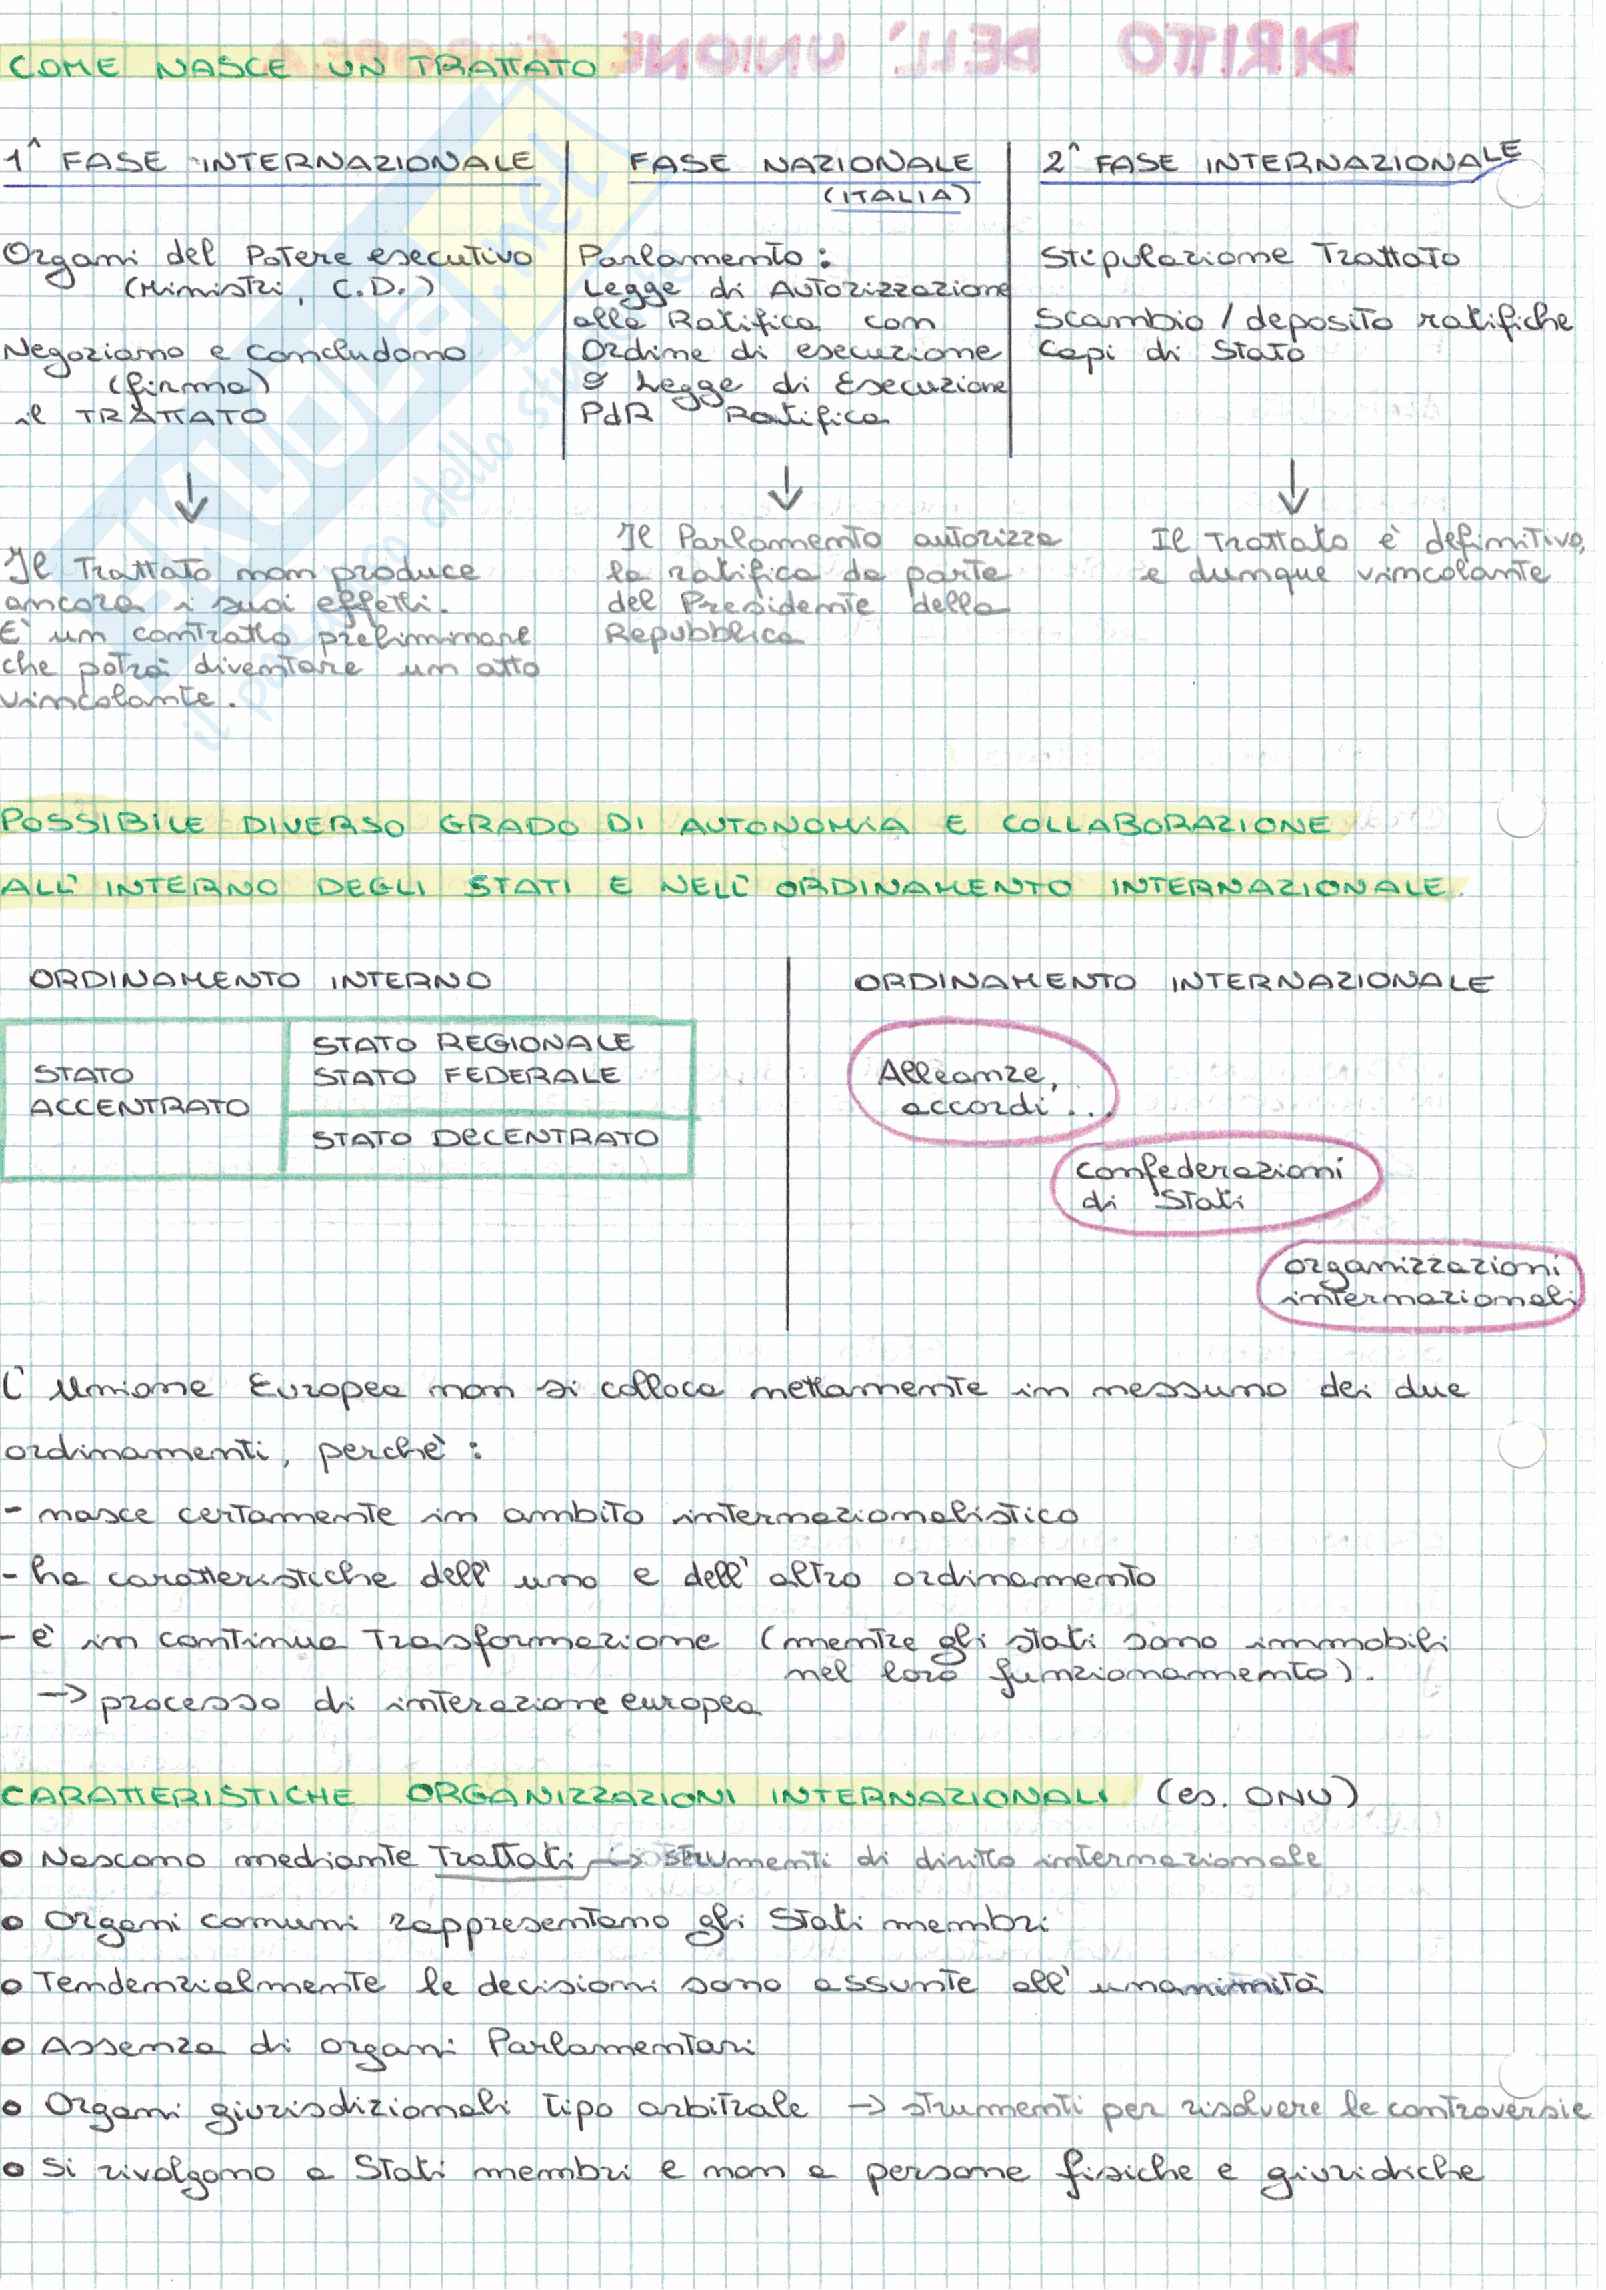 DIRITTO DELL' UNIONE EUROPEA
COME NASCE UN TRATTATO
1^ FASE INTERNAZIONALE
Organi del Potere esecutivo
(Ministri, C.D.)
Negoziano e concludono
(firma)
il TRATTATO
↓
Il Trattato non produce
ancora i suoi effetti.
E' un contratto preliminare
che potrà diventare un atto
vincolante.
FASE NAZIONALE
(ITALIA)
Parlamento:
Legge di Autorizzazione
alla Ratifica con
Ordine di esecuzione
o Legge di Esecuzione
PdR Ratifica
↓
Il Parlamento autorizza
la ratifica da parte
del Presidente della
Repubblica
2^ FASE INTERNAZIONALE
Stipulazione Trattato
Scambio / deposito ratifiche
Capi di Stato
↓
Il Trattato è definitivo,
e dunque vincolante
POSSIBILE DIVERSO GRADO DI AUTONOMIA E COLLABORAZIONE
ALL' INTERNO DEGLI STATI E NELL' ORDINAMENTO INTERNAZIONALE.
ORDINAMENTO INTERNO
STATO
ACCENTRATO
STATO REGIONALE
STATO FEDERALE
STATO DECENTRATO
ORDINAMENTO INTERNAZIONALE
Alleanze,
accordi...
confederazioni
di Stati
organizzazioni
internazionali
L' Unione Europea non si colloca nettamente in nessuno dei due
ordinamenti, perchè:
- nasce certamente in ambito internazionalistico
- ha caratteristiche dell' uno e dell' altro ordinamento
- è in continua Trasformazione (mentre gli stati sono immobili
nel loro funzionamento).
-> processo di interazione europea
CARATTERISTICHE ORGANIZZAZIONI INTERNAZIONALI (es. ONU)
• Nascono mediante Trattati -> strumenti di diritto internazionale
• Organi comuni rappresentano gli Stati membri
• Tendenzialmente le decisioni sono assunte all' unanimità
• Assenza di organi Parlamentari
• Organi giurisdizionali tipo arbitrale -> strumenti per risolvere le controversie
• Si rivolgono a Stati membri e non a persone fisiche e giuridiche
SKUOLA.net
il paradiso dello studente